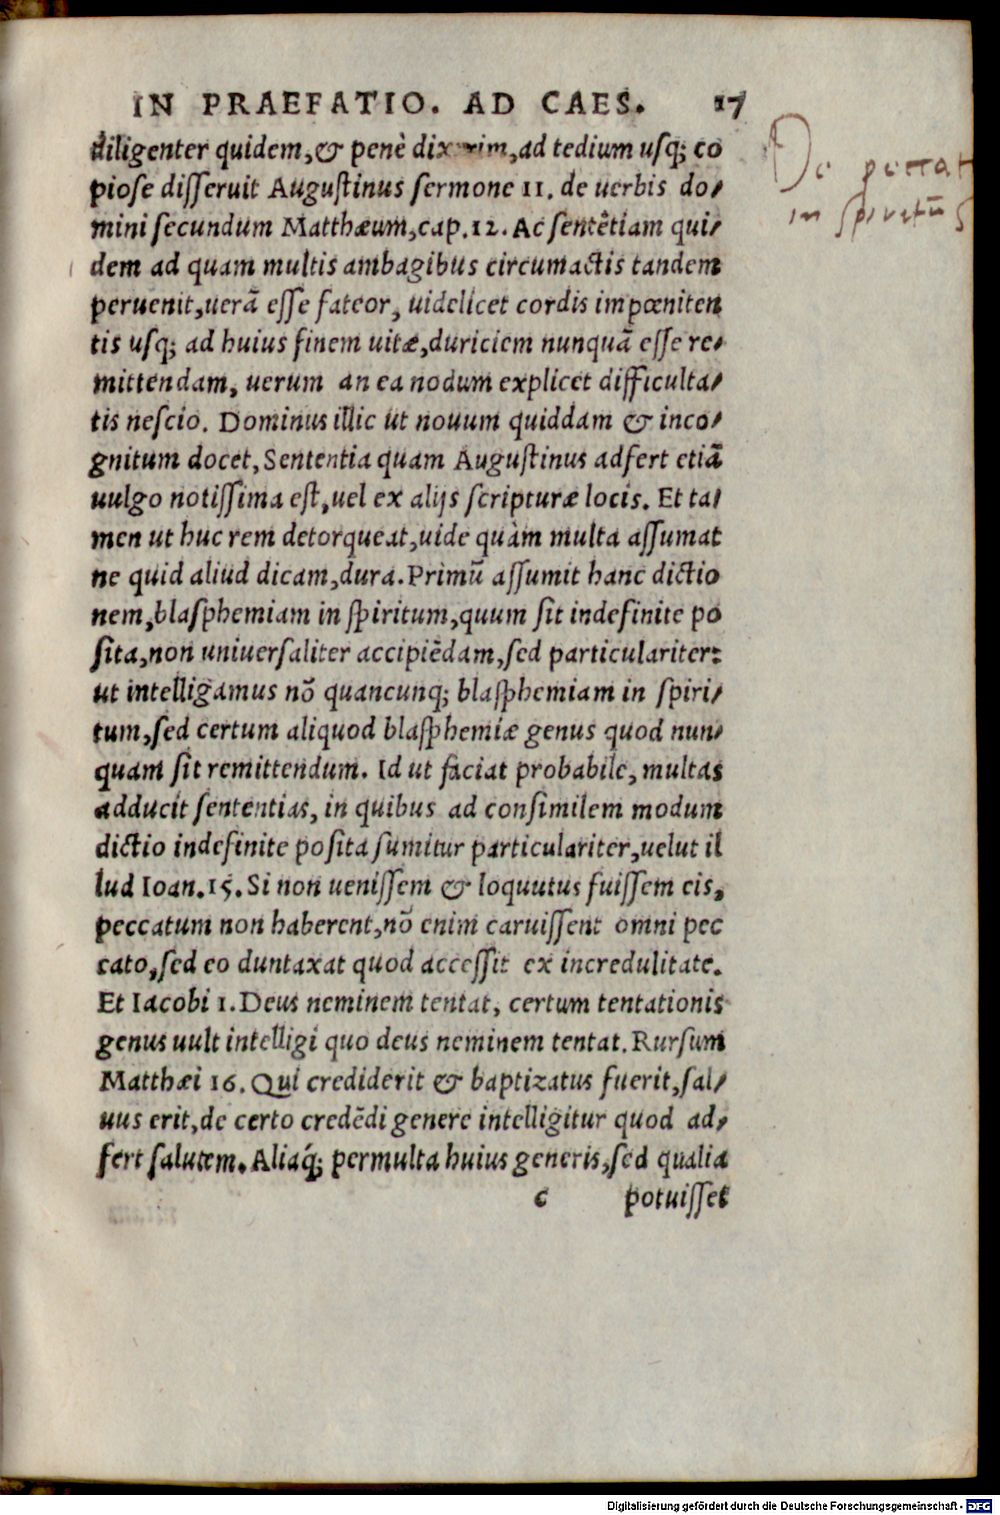 IN PRAEFATIO. AD CAES. 17
De peccat
in spiritũ S
diligenter quidem, & penè dixerim, ad tedium usq; co
piose disseruit Augustinus sermone 11. de uerbis do-
mini secundum Matthæum, cap. 12. Ac sentẽtiam qui-
dem ad quam multis ambagibus circumactis tandem
peruenit, uerã esse fateor, uidelicet cordis impœniten
tis usq; ad huius finem uitæ, duriciem nunquã esse re-
mittendam, uerum an ea nodum explicet difficulta-
tis nescio. Dominus illic ut nouum quiddam & inco-
gnitum docet, Sententia quam Augustinus adfert etiã
uulgo notissima est, uel ex alijs scripturæ locis. Et ta-
men ut huc rem detorqueat, uide quàm multa assumat
ne quid aliud dicam, dura. Primũ assumit hanc dictio
nem, blasphemiam in spiritum, quum sit indefinite po
sita, non uniuersaliter accipiẽdam, sed particulariter:
ut intelligamus nõ quancunq; blasphemiam in spiri-
tum, sed certum aliquod blasphemiæ genus quod nun-
quam sit remittendum. Id ut faciat probabile, multas
adducit sententias, in quibus ad consimilem modum
dictio indefinite posita sumitur particulariter, uelut il
lud Ioan. 15. Si non uenissem & loquutus fuissem eis,
peccatum non haberent, nõ enim caruissent omni pec
cato, sed eo duntaxat quod accessit ex incredulitate.
Et Iacobi 1. Deus neminem tentat, certum tentationis
genus uult intelligi quo deus neminem tentat. Rursum
Matthæi 16. Qui crediderit & baptizatus fuerit, sal-
uus erit, de certo credẽdi genere intelligitur quod ad-
fert salutem. Aliaq́; permulta huius generis, sed qualia
c potuisset
Digitalisierung gefördert durch die Deutsche Forschungsgemeinschaft - DFG